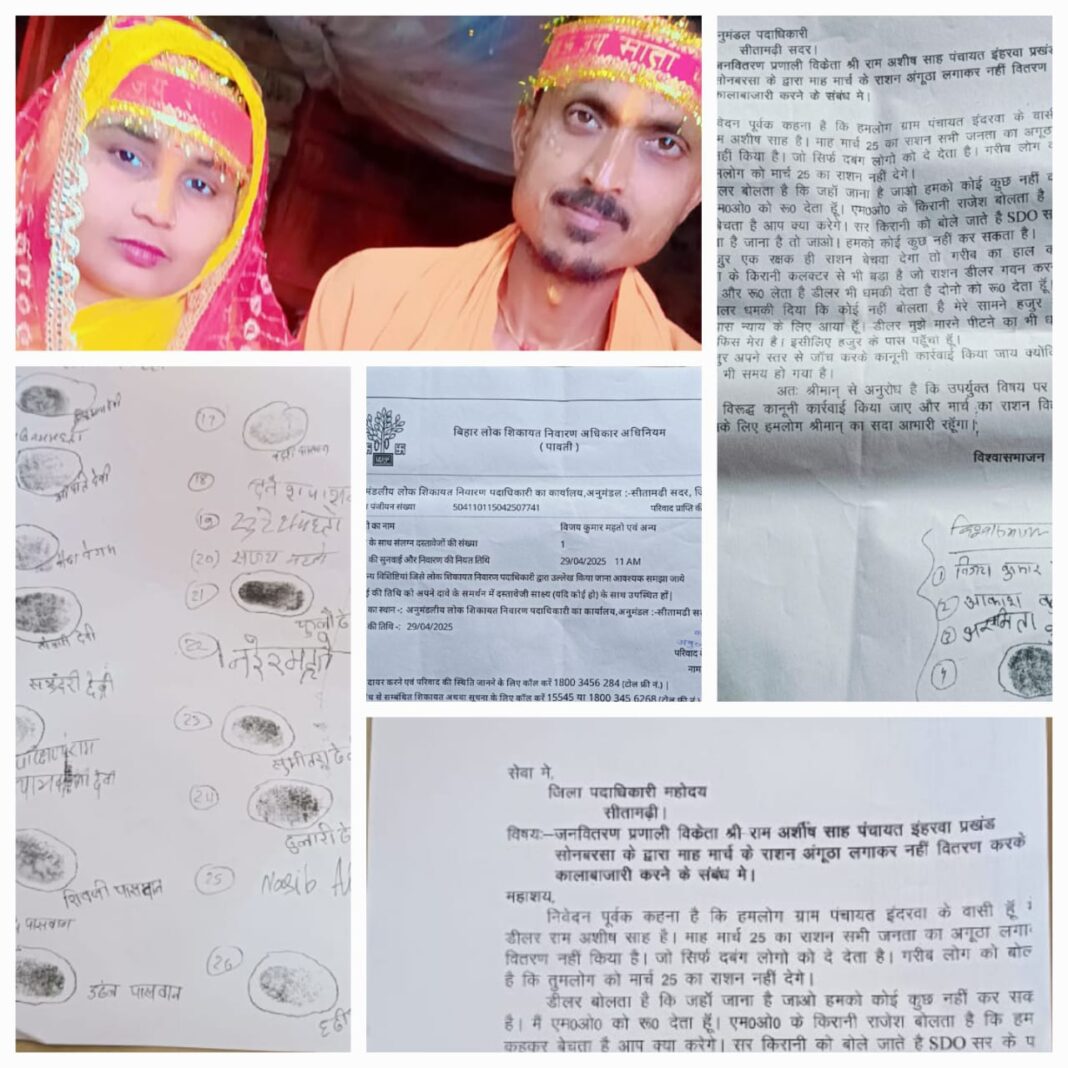 जय माता
नुमंडल पदाधिकारी
सीतामढ़ी सदर।
जनवितरण प्रणाली विकेता श्री राम अशीष साह पंचायत इंहरवा प्रखंड
सोनबरसा के द्वारा माह मार्च के राशन अंगूठा लगाकर नहीं वितरण
कालाबाजारी करने के संबंध मे।
वेदन पूर्वक कहना है कि हमलोग ग्राम पंचायत इंदरवा के वासी
म अशीष साह है। माह मार्च 25 का राशन सभी जनता का अंगूठ
नही किया है। जो सिर्फ दबंग लोगो को दे देता है। गरीब लोग
मलोग को मार्च 25 का राशन नहीं देगे।
लर बोलता है कि जहाँ जाना है जाओ हमको कोई कुछ नहीं
म0ओ0 को रू0 देता हूँ। एम0ओ0 के किरानी राजेश बोलता है
बेचता है आप क्या करेगे। सर किरानी को बोले जाते है SDO स
ा है जाना है तो जाओ। हमको कोई कुछ नहीं कर सकता है।
ुर एक रक्षक ही राशन बेचवा देगा तो गरीब का हाल
ा के किरानी कलक्टर से भी बड़ा है जो राशन डीलर गवन कर
और रू0 लेता है डीलर भी धमकी देता है दोनो को रू0 देता हूँ।
लर धमकी दिया कि कोई नहीं बोलता है मेरे सामने हजुर
ास न्याय के लिए आया हूँ। डीलर मुझे मारने पीटने का भी
फिस मेरा है। इसीलिए हजुर के पास पहुँचा हूँ।
ुर अपने स्तर से जाँच करके कानूनी कार्रवाई किया जाय क्योंि
भी समय हो गया है।
अतः श्रीमान् से अनुरोध है कि उपर्युक्त विषय पर
विरूद्ध कानूनी कार्रवाई किया जाए और मार्च का राशन वि
के लिए हमलोग श्रीमान् का सदा आभारी रहूँगा।
विश्वासभाजन
(1) विजय कुमार
(2) आकाश
(3)
(4)
(17)
(18)
(19)
(20) संजय महतो
21
(22) नरेश महतो
(23)
(24)
दुलारी दे
25 Nasib
(26)
शिवजी पासवान
पासवान
पासवान
बिहार लोक शिकायत निवारण अधिकार अधिनियम
( पावती )
मंडलीय लोक शिकायत निवारण पदाधिकारी का कार्यालय,अनुमंडल :-सीतामढ़ी सदर, जि
पंजीयन संख्या 504110115042507741 परिवाद प्राप्ति की
का नाम विजय कुमार महतो एवं अन्य
के साथ संलग्न दस्तावेजों की संख्या 1
की सुनवाई और निवारण की नियत तिथि 29/04/2025 11 AM
न्य विशिष्टियां जिसे लोक शिकायत निवारण पदाधिकारी द्वारा उल्लेख किया जाना आवश्यक समझा जाये
ई की तिथि को अपने दावे के समर्थन में दस्तावेजी साक्ष्य (यदि कोई हो) के साथ उपस्थित हों|
का स्थान -: अनुमंडलीय लोक शिकायत निवारण पदाधिकारी का कार्यालय,अनुमंडल :-सीतामढ़ी स
की तिथि -: 29/04/2025
परिवाद
नाम
दायर करने एवं परिवाद की स्थिति जानने के लिए कॉल करें 1800 3456 284 (टोल फ्री नं.) |
से सम्बंधित शिकायत अथवा सूचना के लिए कॉल करें 15545 या 1800 345 6268 (टोल फ्री नं
सेवा मे,
जिला पदाधिकारी महोदय
सीतामढ़ी।
विषयः–जनवितरण प्रणाली विकेता श्री राम अर्शीष साह पंचायत इंहरवा प्रखंड
सोनबरसा के द्वारा माह मार्च के राशन अंगूठा लगाकर नहीं वितरण करके
कालाबाजारी करने के संबंध मे।
महाशय,
निवेदन पूर्वक कहना है कि हमलोग ग्राम पंचायत इंदरवा के वासी हूँ
डीलर राम अशीष साह है। माह मार्च 25 का राशन सभी जनता का अगूठा लगा
वितरण नहीं किया है। जो सिर्फ दबंग लोगो को दे देता है। गरीब लोग को बोल
है कि तुमलोग को मार्च 25 का राशन नहीं देगे।
डीलर बोलता है कि जहाँ जाना है जाओ हमको कोई कुछ नहीं कर सक
है। मैं एम0ओ0 को रू0 देता हूँ। एम0ओ0 के किरानी राजेश बोलता है कि हम
कहकर बेचता है आप क्या करेगे। सर किरानी को बोले जाते है SDO सर के प